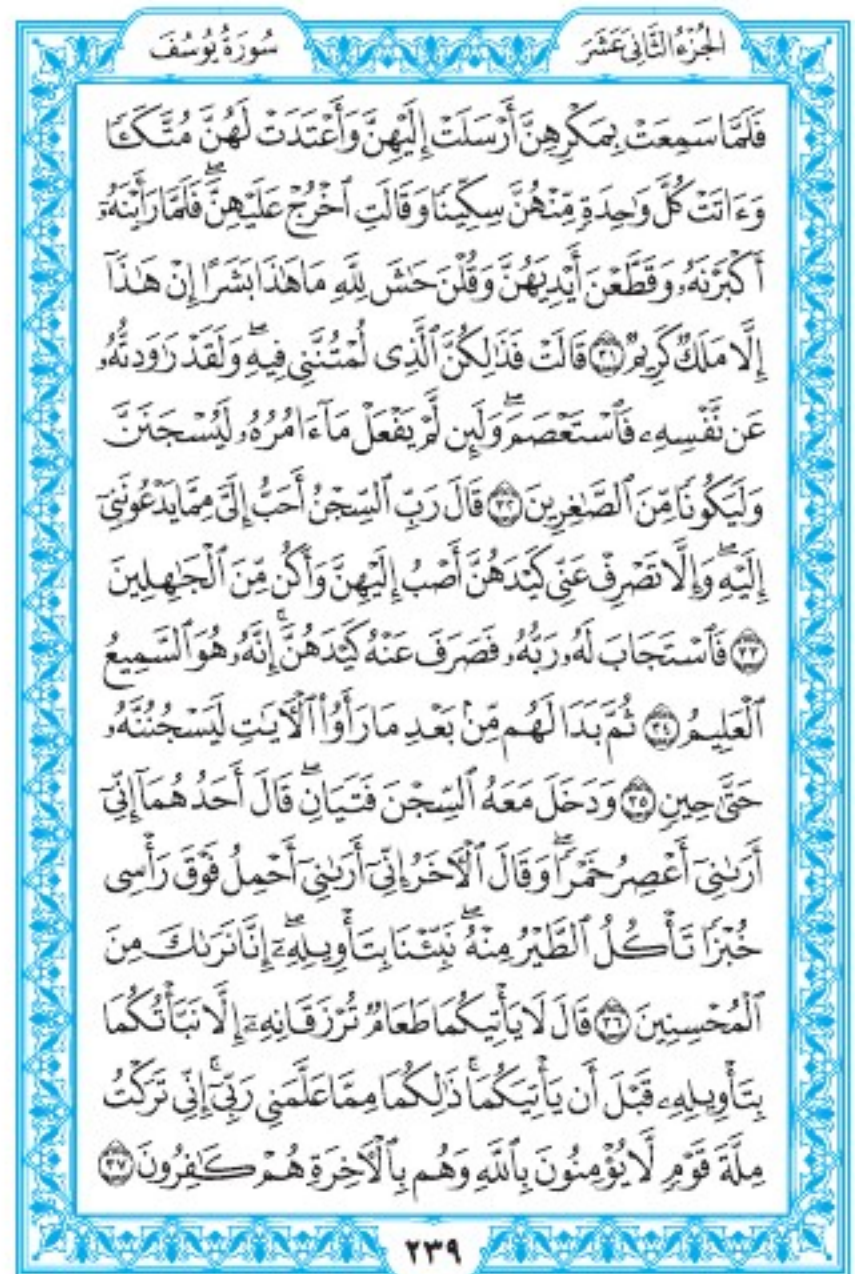 الجُزْءُ الثَّانِي عَشَرَ
سُورَةُ يُوسُفَ
فَلَمَّا سَمِعَتْ بِمَكْرِهِنَّ أَرْسَلَتْ إِلَيْهِنَّ وَأَعْتَدَتْ لَهُنَّ مُتَّكَـًٔا
وَءَاتَتْ كُلَّ وَٰحِدَةٍ مِّنْهُنَّ سِكِّينًا وَقَالَتِ ٱخْرُجْ عَلَيْهِنَّۖ فَلَمَّا رَأَيْنَهُۥٓ
أَكْبَرْنَهُۥ وَقَطَّعْنَ أَيْدِيَهُنَّ وَقُلْنَ حَٰشَ لِلَّهِ مَا هَٰذَا بَشَرًا إِنْ هَٰذَآ
إِلَّا مَلَكٌ كَرِيمٌ ٣١ قَالَتْ فَذَٰلِكُنَّ ٱلَّذِى لُمْتُنَّنِى فِيهِۖ وَلَقَدْ رَٰوَدتُّهُۥ
عَن نَّفْسِهِۦ فَٱسْتَعْصَمَۖ وَلَئِن لَّمْ يَفْعَلْ مَآ ءَامُرُهُۥ لَيُسْجَنَنَّ
وَلَيَكُونًا مِّنَ ٱلصَّٰغِرِينَ ٣٢ قَالَ رَبِّ ٱلسِّجْنُ أَحَبُّ إِلَىَّ مِمَّا يَدْعُونَنِىٓ
إِلَيْهِۖ وَإِلَّا تَصْرِفْ عَنِّى كَيْدَهُنَّ أَصْبُ إِلَيْهِنَّ وَأَكُن مِّنَ ٱلْجَٰهِلِينَ
٣٣ فَٱسْتَجَابَ لَهُۥ رَبُّهُۥ فَصَرَفَ عَنْهُ كَيْدَهُنَّۚ إِنَّهُۥ هُوَ ٱلسَّمِيعُ
ٱلْعَلِيمُ ٣٤ ثُمَّ بَدَا لَهُم مِّنۢ بَعْدِ مَا رَأَوُا۟ ٱلْـَٔايَٰتِ لَيَسْجُنُنَّهُۥ
حَتَّىٰ حِينٍ ٣٥ وَدَخَلَ مَعَهُ ٱلسِّجْنَ فَتَيَانِۖ قَالَ أَحَدُهُمَآ إِنِّىٓ
أَرَىٰنِىٓ أَعْصِرُ خَمْرًاۖ وَقَالَ ٱلْـَٔاخَرُ إِنِّىٓ أَرَىٰنِىٓ أَحْمِلُ فَوْقَ رَأْسِى
خُبْزًا تَأْكُلُ ٱلطَّيْرُ مِنْهُۖ نَبِّئْنَا بِتَأْوِيلِهِۦٓۖ إِنَّا نَرَىٰكَ مِنَ
ٱلْمُحْسِنِينَ ٣٦ قَالَ لَا يَأْتِيكُمَا طَعَامٌ تُرْزَقَانِهِۦٓ إِلَّا نَبَّأْتُكُمَا
بِتَأْوِيلِهِۦ قَبْلَ أَن يَأْتِيَكُمَاۚ ذَٰلِكُمَا مِمَّا عَلَّمَنِى رَبِّىٓۚ إِنِّى تَرَكْتُ
مِلَّةَ قَوْمٍ لَّا يُؤْمِنُونَ بِٱللَّهِ وَهُم بِٱلْـَٔاخِرَةِ هُمْ كَٰفِرُونَ ٣٧
٢٣٩